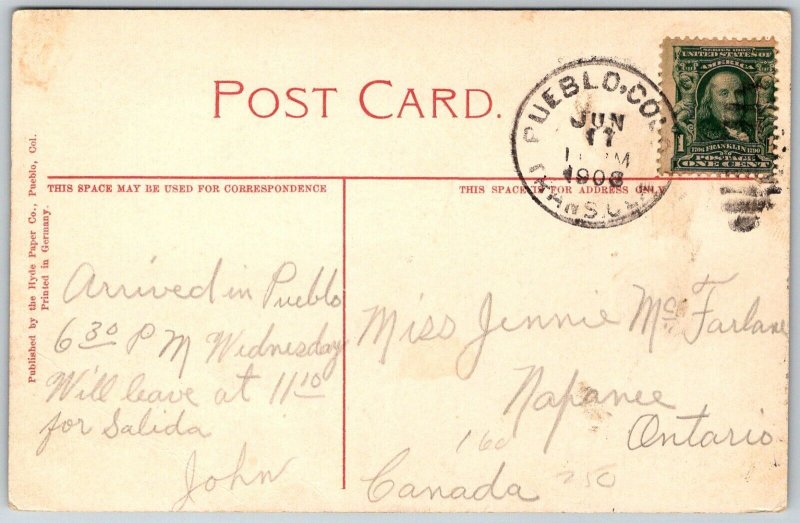 POST CARD.
PUEBLO, COLO.
JUN
17
M
1908
SERIES 1902
UNITED STATES OF
AMERICA
1
1706 FRANKLIN 1790
POSTAGE
ONE CENT
THIS SPACE MAY BE USED FOR CORRESPONDENCE
THIS SPACE IS FOR ADDRESS ONLY
Published by the Hyde Paper Co., Pueblo, Col.
Printed in Germany.
Arrived in Pueblo
6 30 P M Wednesday
Will leave at 11 10
for Salida
John
Miss Jennie McFarlane
Napanee
Ontario
Canada
160
250